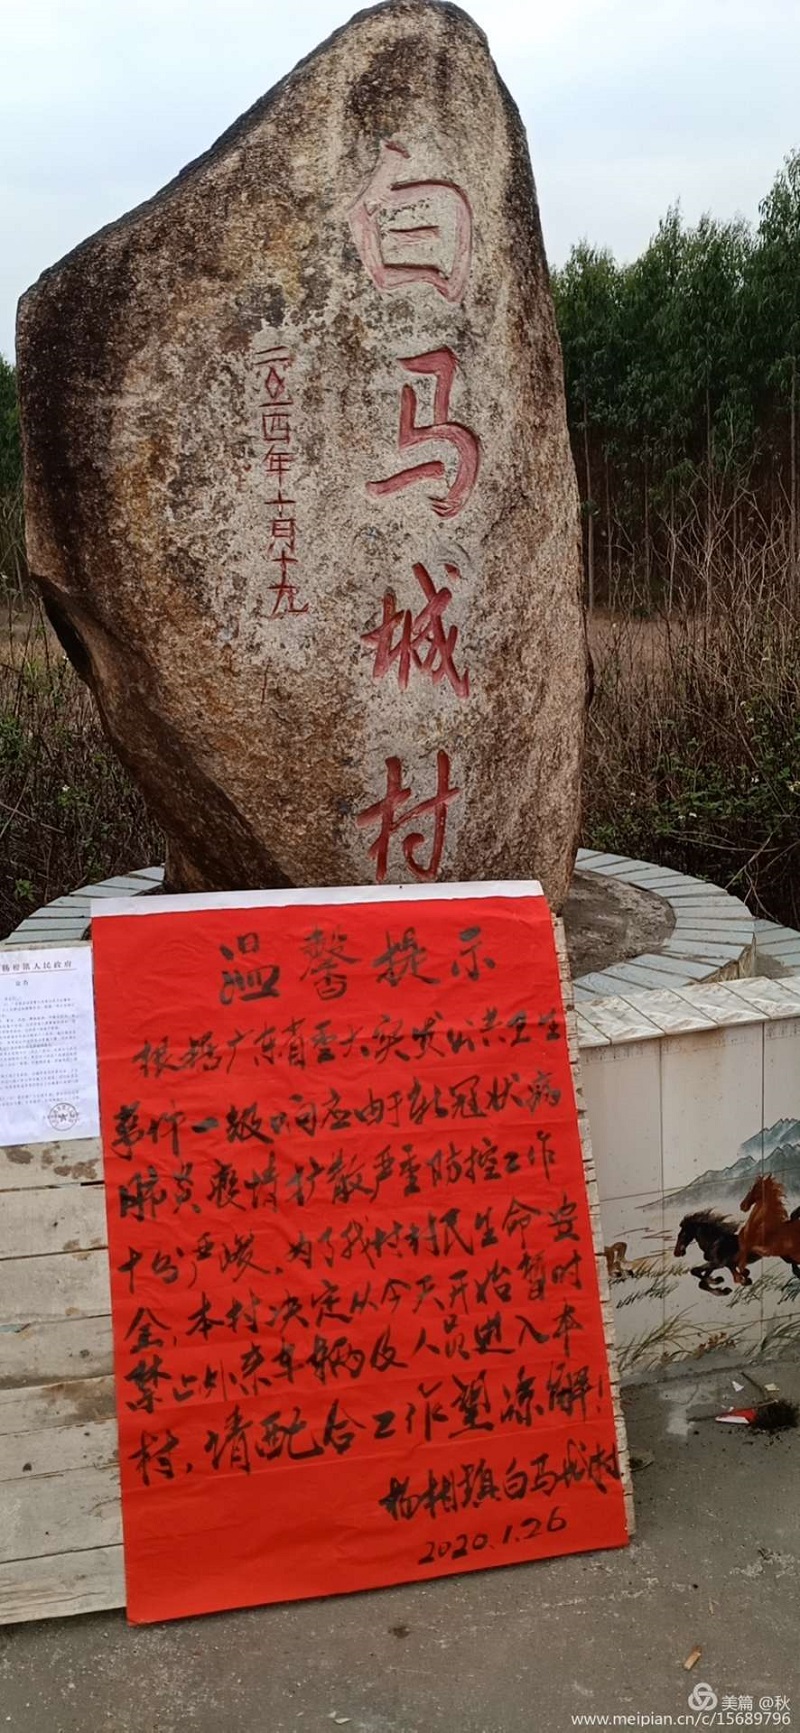 白马城村
二〇一四年十月十九
温馨提示
根据广东省重大突发公共卫生
事件一级响应由于新冠状病
肺炎疫情扩散严重防控工作
十分严峻、为了我村村民生命安
全,本村决定从今天开始暂时
禁止外来车辆及人员进入本
村,请配合工作望凉解!
杨柑镇白马城村
2020.1.26
杨柑镇人民政府
美篇 @秋
www.meipian.cn/c/15689796